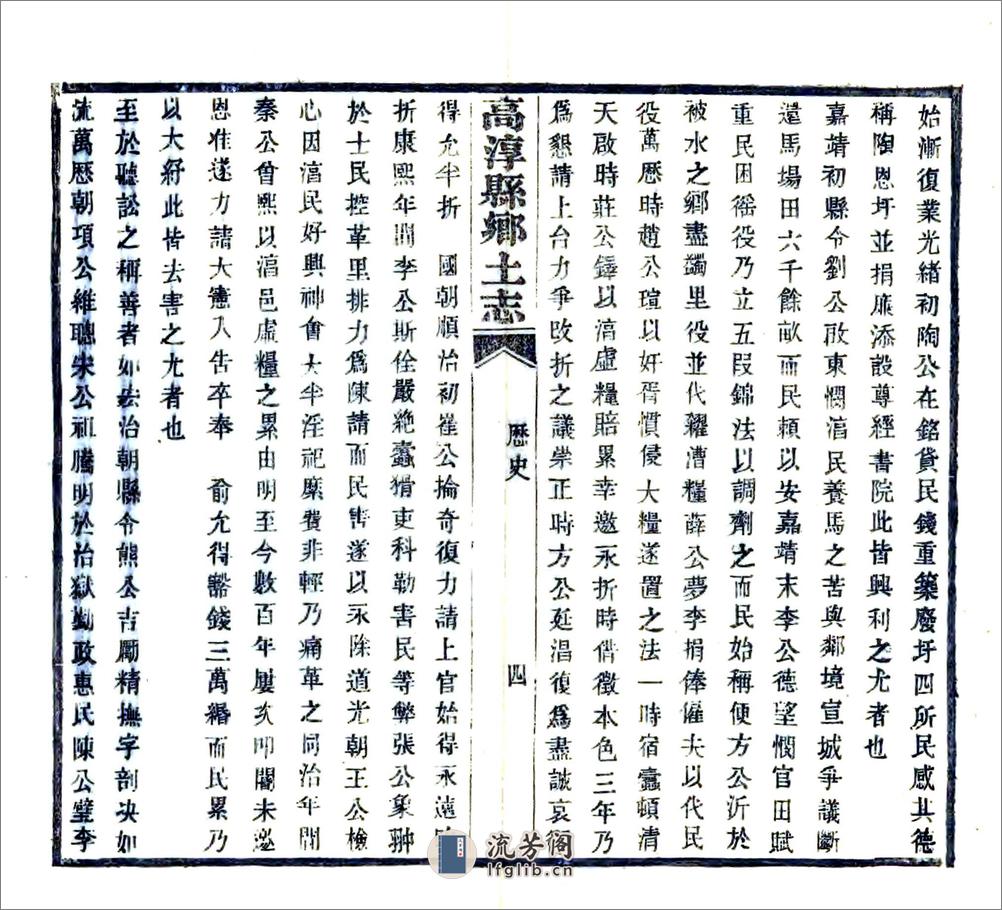 始漸復業光緒初陶公在銘貸民錢重築廢圩四所民感其德
稱陶恩圩並捐廉添設尊經書院此皆興利之尤者也
嘉靖初縣令劉公啟東憫淳民養馬之苦與鄰境宣城爭議斷
還馬場田六千餘畝而民賴以安嘉靖末李公德望憫官田賦
重民困徭役乃立五段錦法以調劑之而民始稱便方公沂於
被水之鄉盡蠲里役並代糴漕糧薛公夢李捐俸僱夫以代民
役萬歷時趙公瑄以奸胥慣侵大糧遂置之法一時宿蠹頓清
天啟時莊公鐸以淳虛糧賠累幸邀永折時借徵本色三年乃
爲懇請上台力爭改折之議崇正時方公廷湄復爲盡諴哀
高淳縣鄉土志
歷史
四
得允半折 國朝順治初崔公掄奇復力請上官始得永遠
折康熙年間李公斯佺嚴絶蠹猾吏科勒害民等弊張公象翀
於士民控革里排力爲陳請而民害遂以永除道光朝王公檢
心因淳民好興神會大半淫祀糜費非輕乃痛革之同治年間
秦公曾熙以淳邑虛糧之累由明至今數百年屢次叩閽未邀
恩准遂力請大憲入告卒奉 俞允得豁錢三萬緡而民累乃
以大紓此皆去害之尤者也
至於聽訟之稱善者如宏治朝縣令熊公吉勵精撫字剖决如
流萬歷朝項公維聰朱公祖騰明於治獄勤政惠民陳公璧李
流芳閣
lfglib.cn